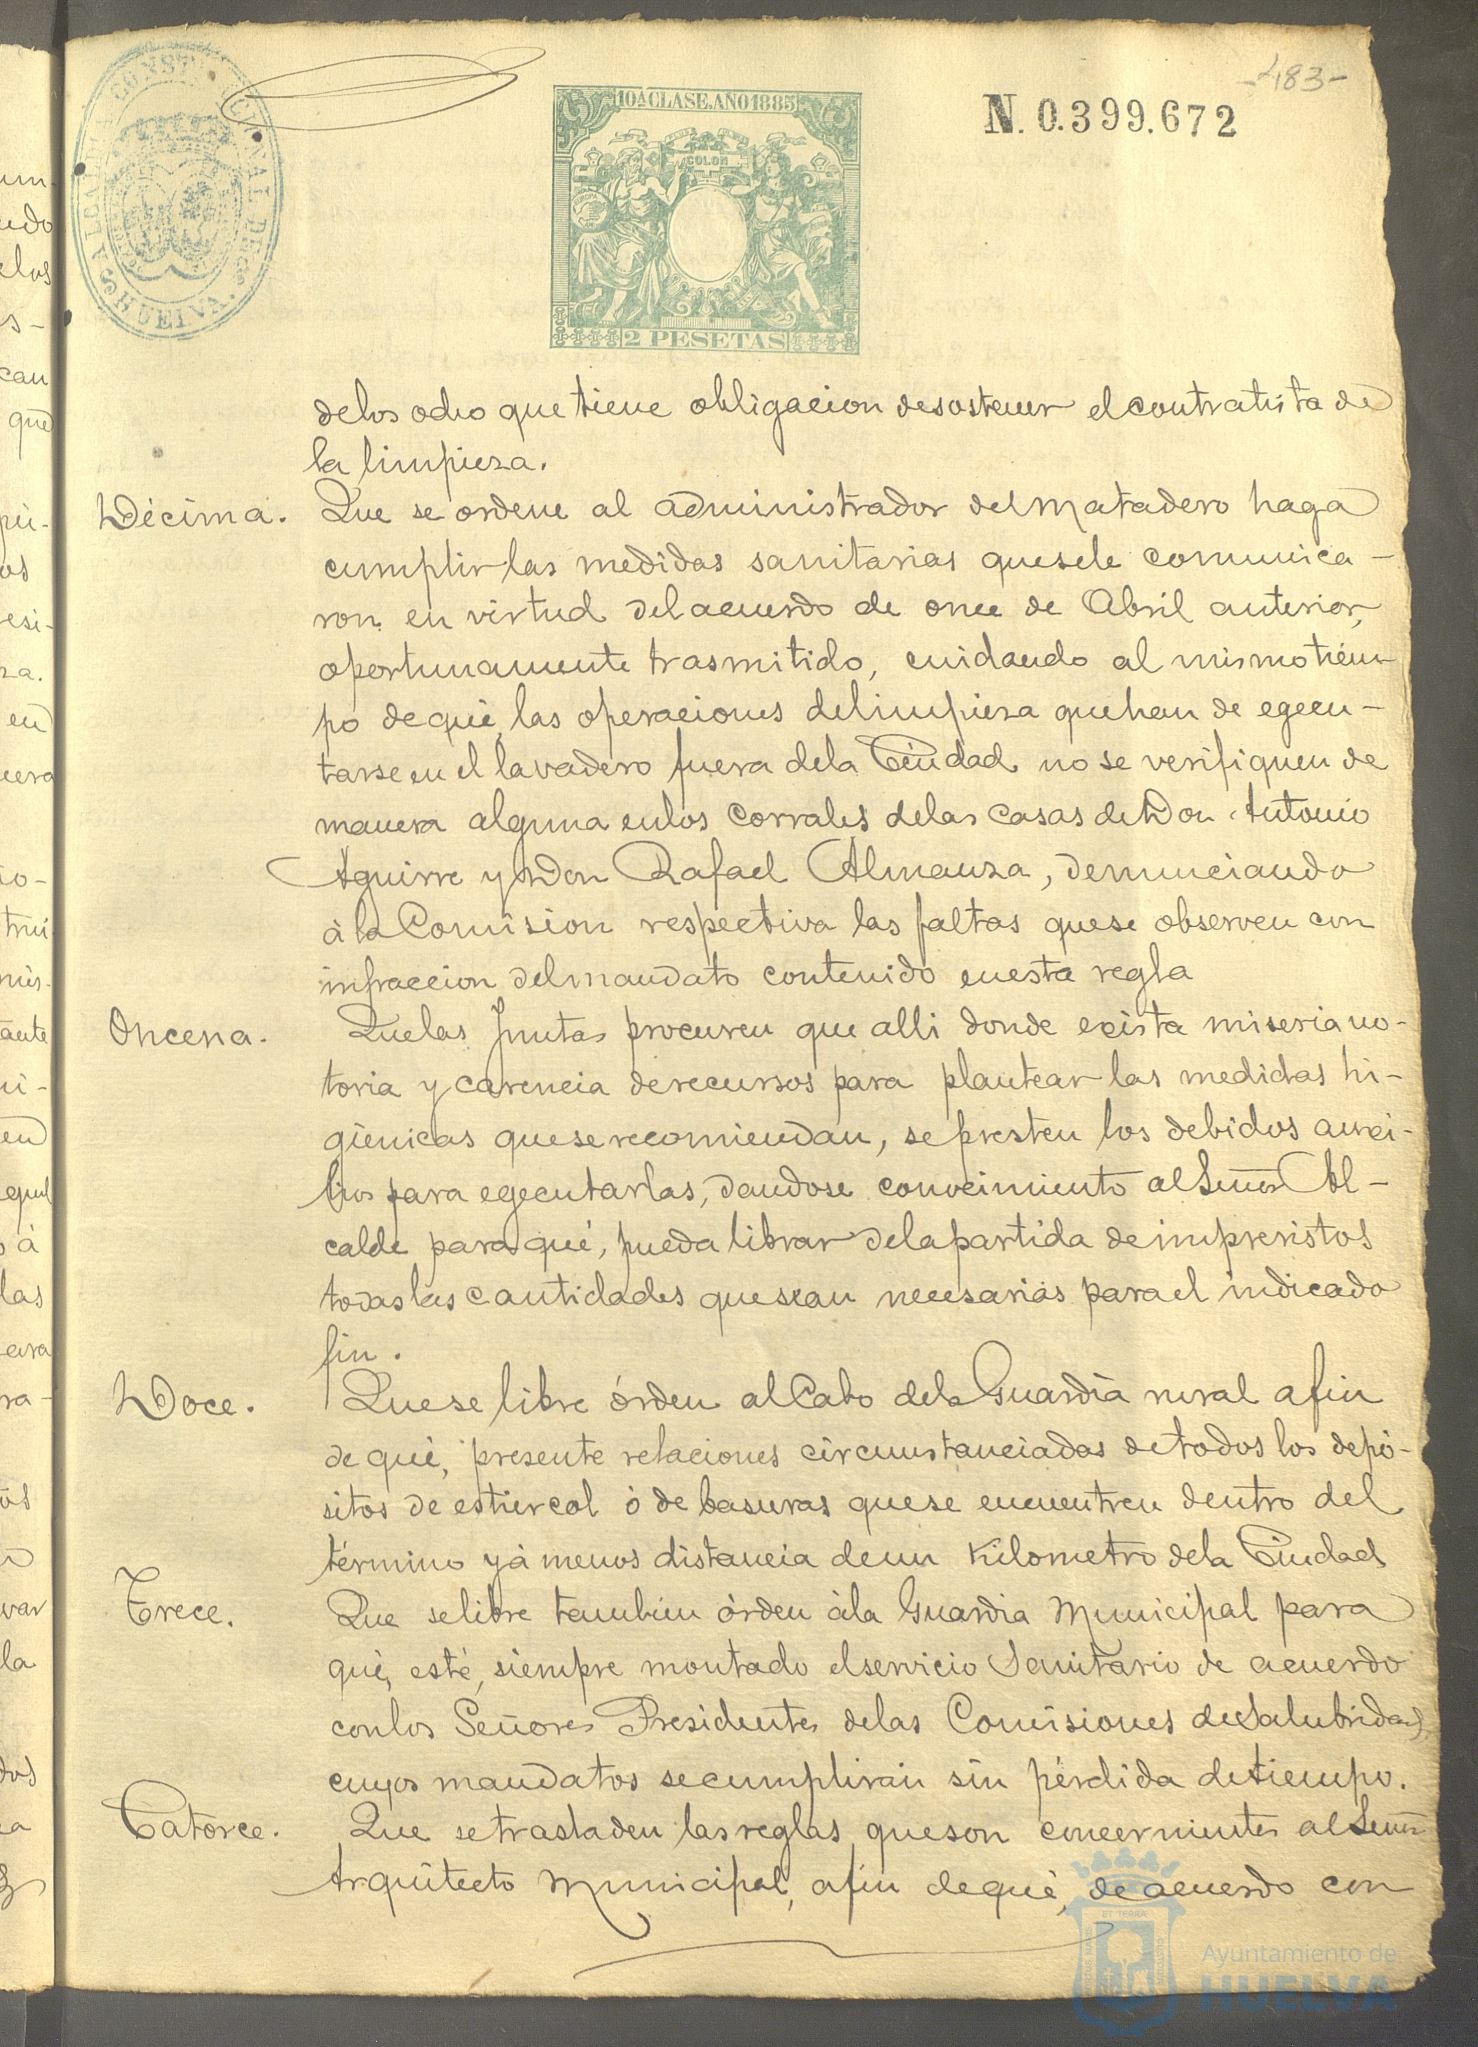 -483-
ALCALDIA CONSTITUCIONAL DE
HUELVA.
10ª CLASE. AÑO 1885
COLON
2 PESETAS
N. 0.399.672
delos odio que tiene obligacion desostener el contratista de
la limpieza.
Décima. Que se ordene al administrador del Matadero haga
cumplir las medidas sanitarias quesele comunica-
ron en virtud del acuerdo de once de Abril anterior,
oportunamente trasmitido, cuidando al mismo tiem
po de que, las operaciones delimpieza quehan de egecu-
tarse en el lavadero fuera dela Ciudad no se verifiquen de
manera alguna enlos corrales delas casas de Don Antonio
Aguirre y Don Rafael Almanza, denunciando
à la Comision respectiva las faltas quese observen con
infraccion del mandato contenido enesta regla
Oncena. Quelas Juntas procuren que alli donde exista miseria no-
toria y carencia derecursos para plantear las medidas hi-
giènicas quese recomiendan, se presten los debidos auxi-
lios para egecutarlas, dandose conocimiento al Señor Al-
calde para qué, pueda librar dela partida de imprevistos
todas las cantidades quesean necesarias para el indicado
fin.
Doce. Quese libre órden al Cabo dela Guardia rural a fin
de què, presente relaciones circunstanciadas de todos los depò-
sitos de estiercol ò de basuras quese encuentren dentro del
término y à menos distancia de un Kilometro dela Ciudad
Trece. Que selibre tambien òrden àla Guardia Municipal para
què, esté, siempre montado elservicio Sanitario de acuerdo
conlos Señores Presidentes delas Comisiones deSalubridad,
cuyos mandatos secumpliràn sin pérdida detiempo.
Catorce. Que se trasladen las reglas que son concernientes al Señor
Arquitecto Municipal, afin deque, de acuerdo con
Ayuntamiento de
HUELVA